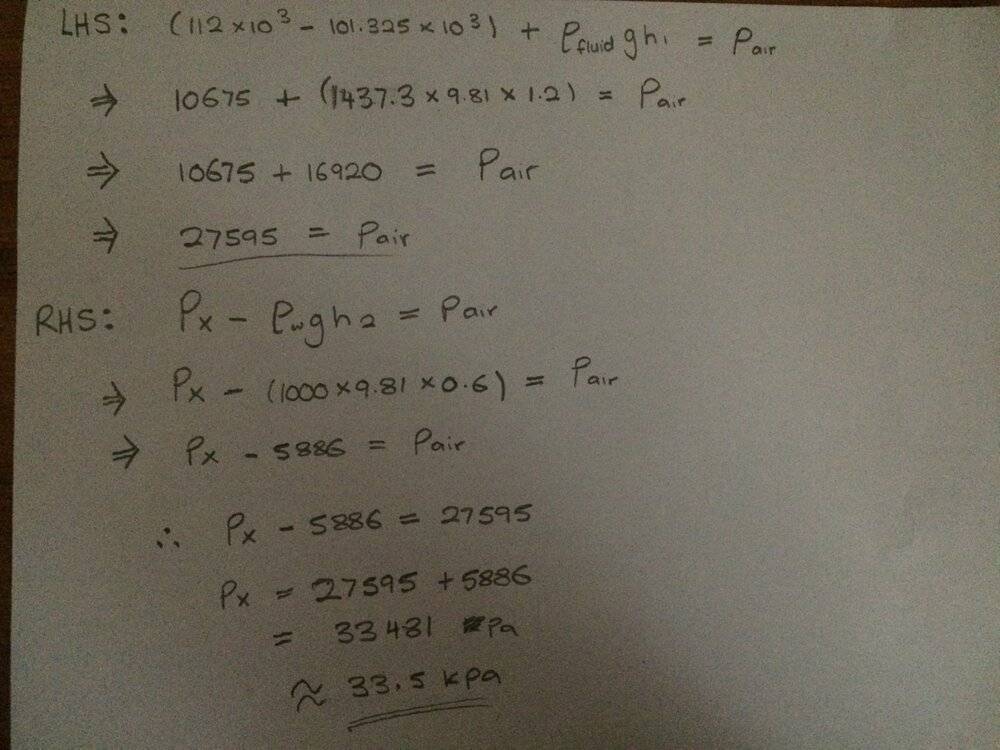 LHS: (112 × 10³ – 101.325 × 10³) + ρfluid g h₁ = Pair
⇒ 10675 + (1437.3 × 9.81 × 1.2) = Pair
⇒ 10675 + 16920 = Pair
⇒ 27595 = Pair
RHS: Px – ρw g h₂ = Pair
⇒ Px – (1000 × 9.81 × 0.6) = Pair
⇒ Px – 5886 = Pair
∴ Px – 5886 = 27595
Px = 27595 + 5886
= 33481 Pa
≈ 33.5 kPa